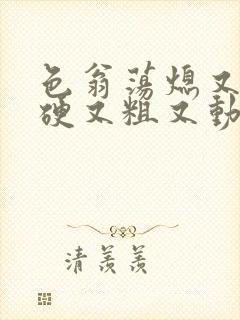 色翁荡熄又
硬又粗又動
清羡羡